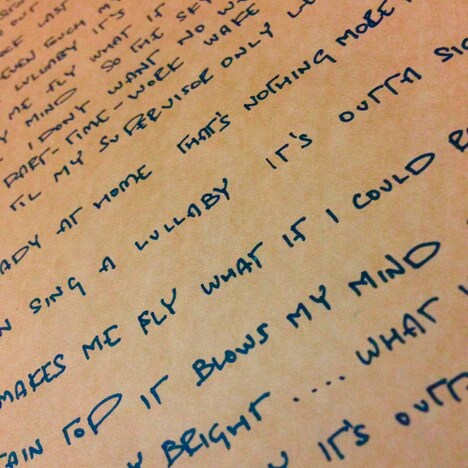 LAST
EVEN TOUCH MY
LULLABY IT'S
ME FLY WHAT IF
MY MIND SO THE SKY
I DON'T WANT NO
PART-TIME-WORK WAKE
TIL MY SUPERVISOR ONLY
AT HOME THAT'S NOTHING MORE
SING A LULLABY IT'S OUTTA
MAKES ME FLY WHAT IF I COULD
TOP IT BLOWS MY MIND
BRIGHT .... WHAT
IT'S OUTTA